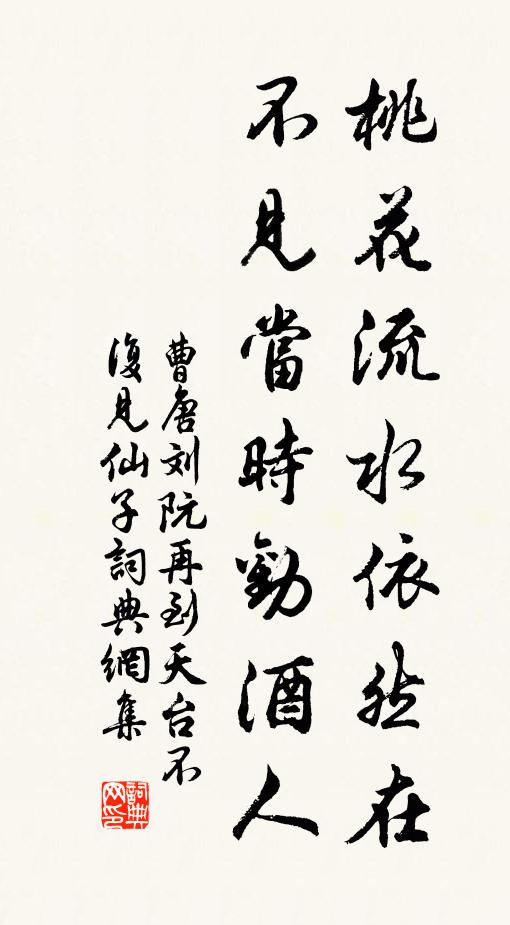 桃花流水依然在
不見當時勸酒人
曹唐刘阮再到天台不
復見仙子詞典網集
詞典
网印